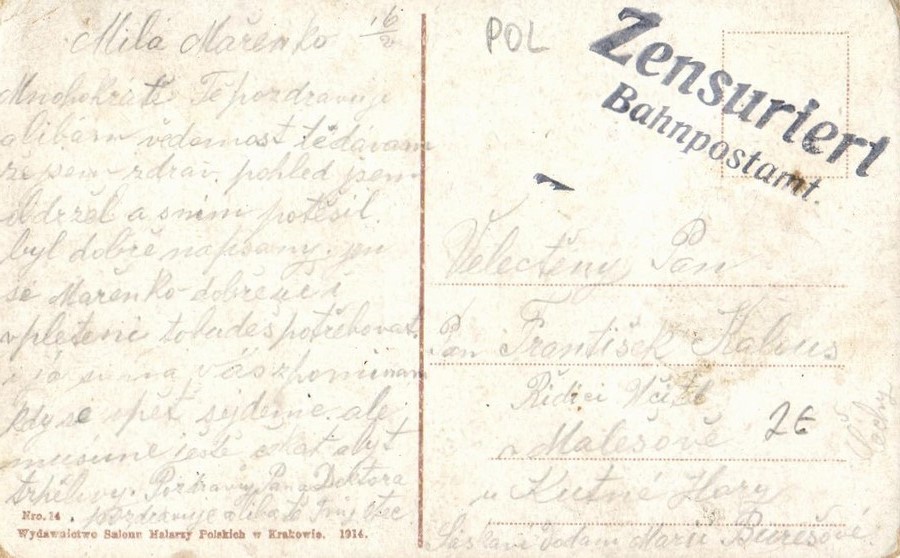 Milá Mařenko 16/2
Mnohokráte Tě pozdravuji
a líbám vědomost tě dávam
že jsem zdráv. pohled jsem
obdrzel a sním potěsil.
byl dobře napsany. jen
se Mařenko dobře uč i
vpleteni to budeš potřebovat.
i já si na vás zpomínam
kdy se opět sejdeme. ale
musíme ještě čekat a byt
trpělivy. Pozdravuj Pana Doktora
pozdravuje a líba tě Tvůj Otec
Nro. 14
Wydawnictwo Salonu Malarzy Polskich w Krakowie. 1914.
POL
Zensuriert
Bahnpostamt.
Velectěny Pan
Pan František Kalous
Řidici Učitel
v Malešově
u Kutné Hory
Čechy
2€
Marii Burešové